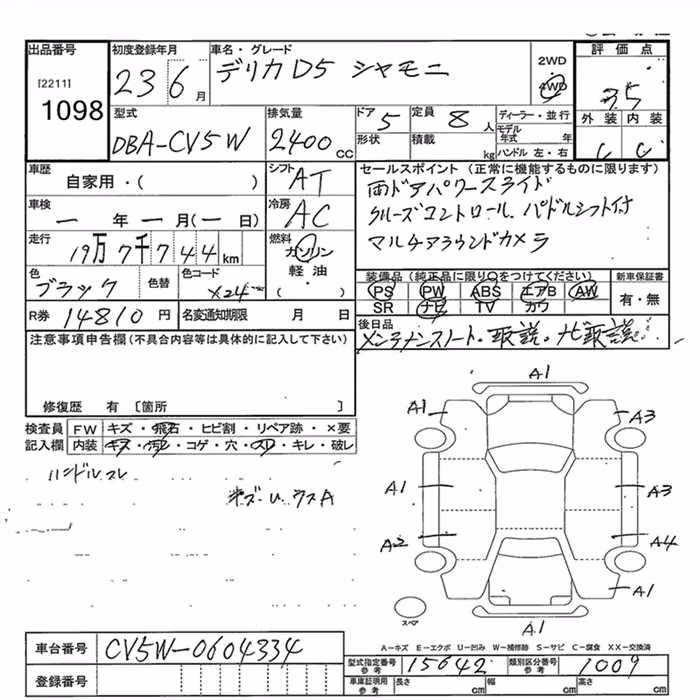 出品番号 初度登録年月 車名・グレード 2WD 評価点
[2211] 1098
23 6月 デリカD5 シャモニ 4WD 3.5
型式 排気量 ドア 定員 ディーラー・並行 外装 内装
DBA-CV5W 2400cc 5 8人 モデル年式 年 C C
形状 積載 kg ハンドル 左・右
車歴 シフト セールスポイント(正常に機能するものに限ります)
自家用・( ) AT 両ドアパワースライド
車検 冷房 クルーズコントロール、パドルシフト付
一年一月(一日) AC マルチアラウンドカメラ
走行 燃料
19万7千744km ガソリン
色 色替 色コード 軽油 装備品(純正品に限り○をつけてください) 新車保証書
ブラック X24 ( ) PS PW ABS エアB AW 有・無
SR ナビ TV カワ
R券 14810円 名変通知期限 月 日 後日品
メンテナンスノート。取説。ナビ取説。
注意事項申告欄(不具合内容等は具体的に記入して下さい)
修復歴 有 〔箇所 〕
検査員 FW キズ・飛石・ヒビ割・リペア跡・×要
記入欄 内装 キズ・汚れ・コゲ・穴・スレ・キレ・破レ
ハンドルスレ
A1
A1 A3
A1 A3
A2 A4
A1
A1
スペア
A-キズ E-エクボ U-凹み W-補修跡 S-サビ C-腐食 XX-交換済
車台番号 CV5W-0604334
型式指定番号 参考 15642 類別区分番号 参考 1009
登録番号
車庫証明用 参考 長さ cm 幅 cm 高さ cm